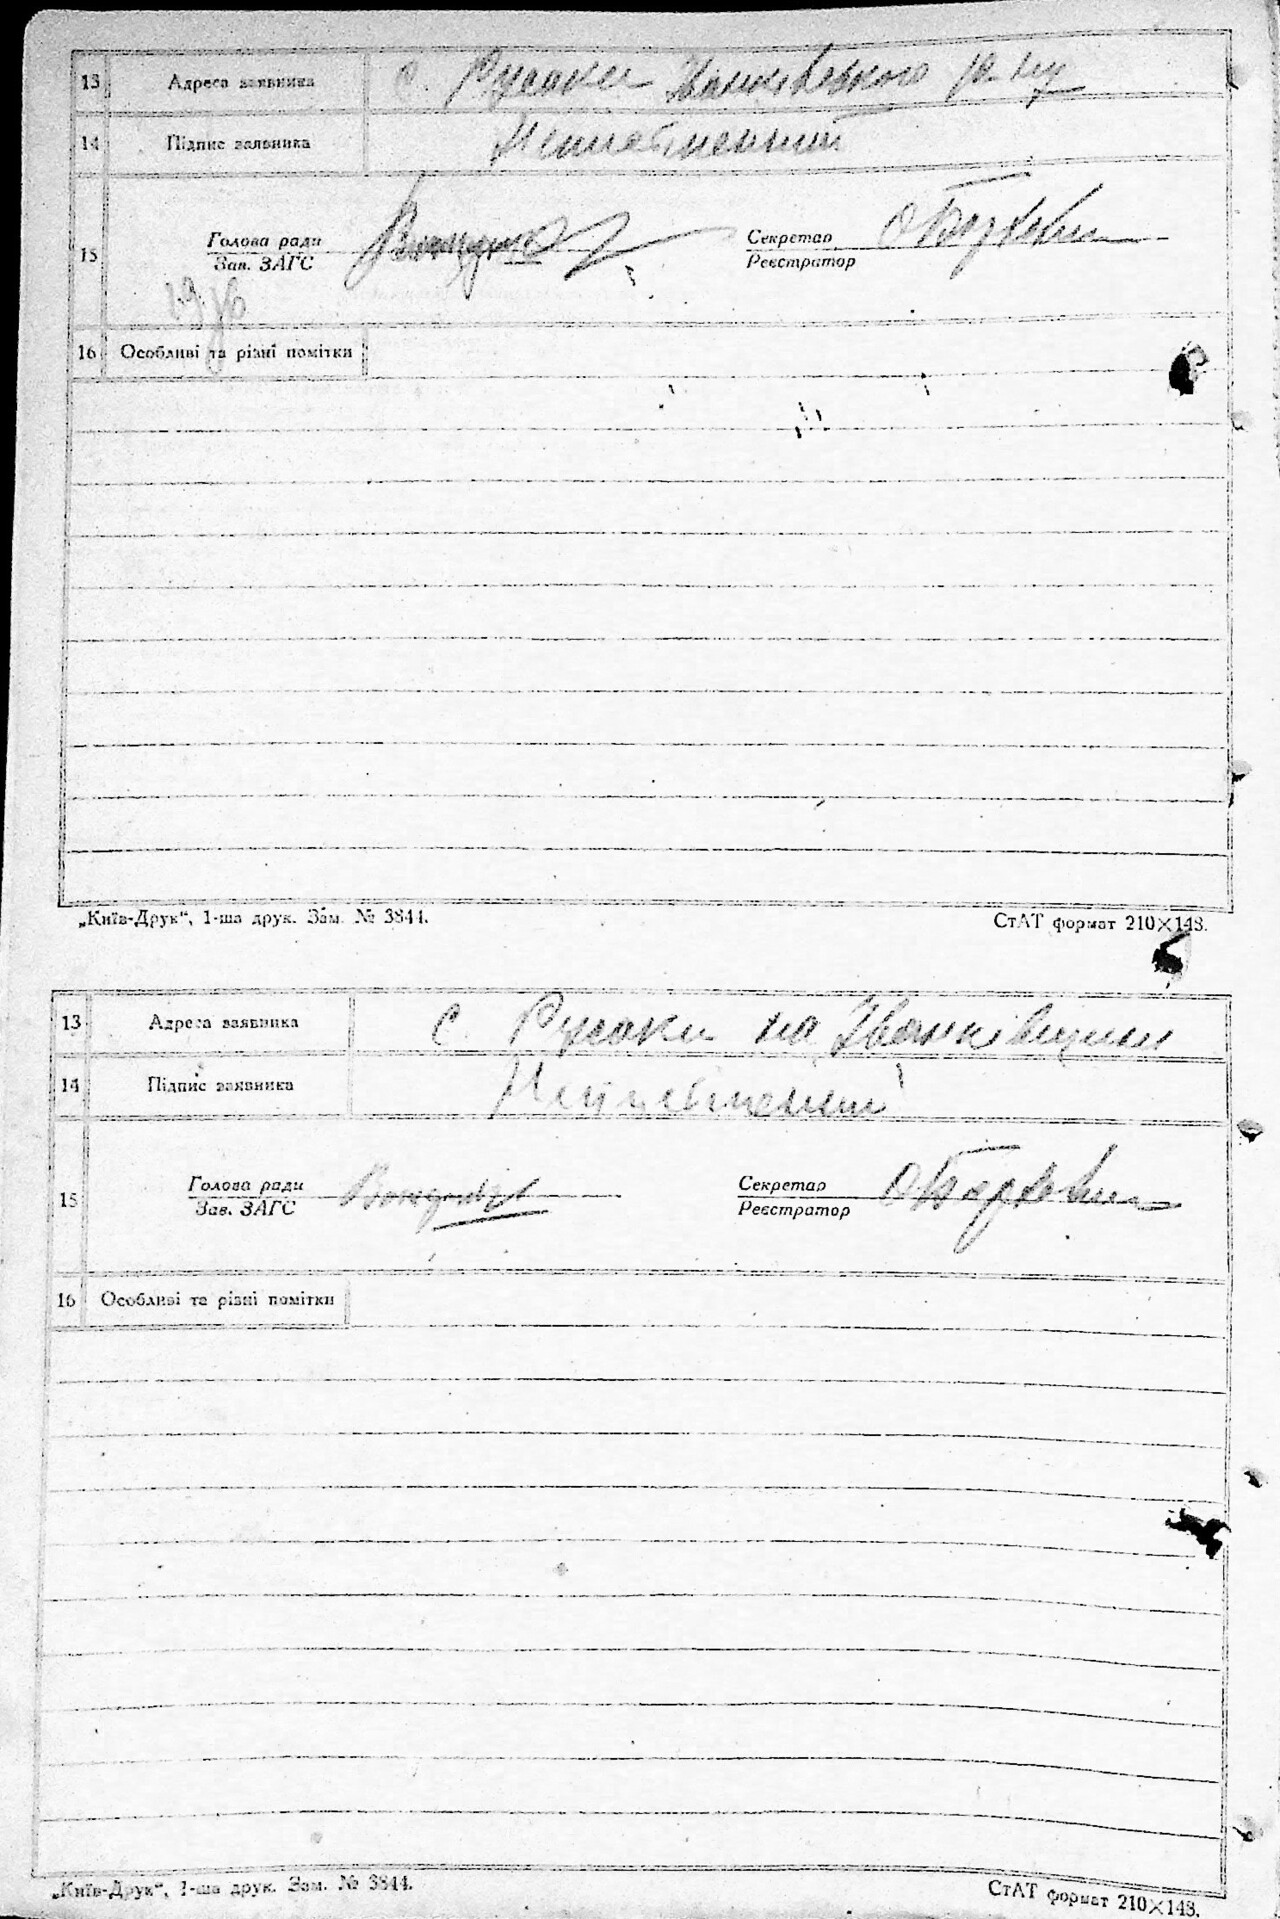 13 Адреса заявника с. Русаки Іванківського р-ну
14 Підпис заявника Неписьменний
15 Голова ради
Зав. ЗАГС
Секретар
Реєстратор
16 Особливі та різні помітки
„Київ-Друк“, 1-ша друк. Зам. № 3844. СтАТ формат 210×148.
13 Адреса заявника с. Русаки на Іванківщини
14 Підпис заявника Неписьменний
15 Голова ради
Зав. ЗАГС
Секретар
Реєстратор
16 Особливі та різні помітки
„Київ-Друк“, 1-ша друк. Зам. № 3844. СтАТ формат 210×148.